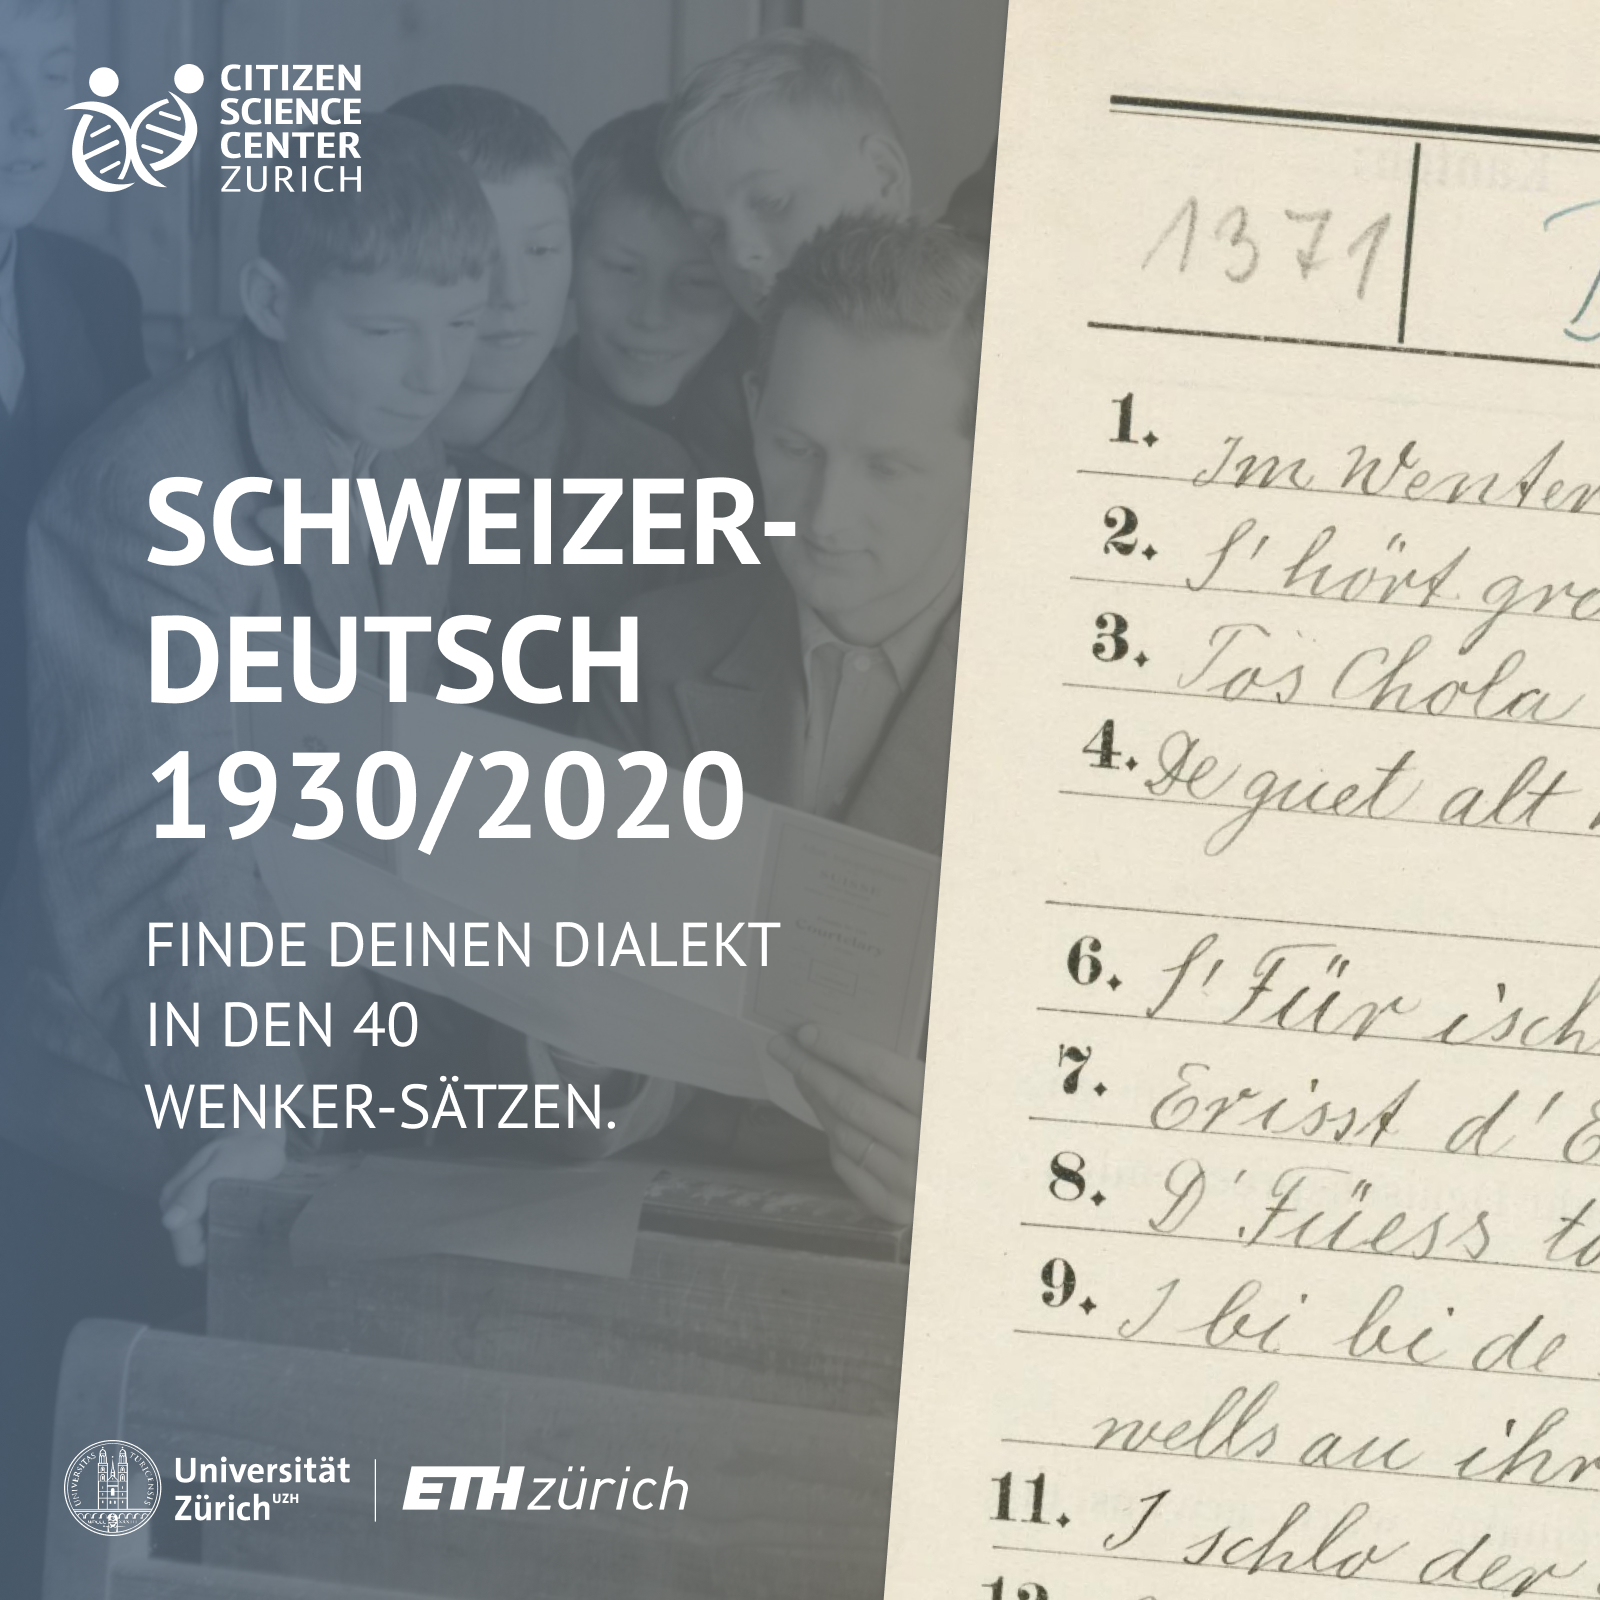 CITIZEN
SCIENCE
CENTER
ZURICH
SCHWEIZER-
DEUTSCH
1930/2020
FINDE DEINEN DIALEKT
IN DEN 40
WENKER-SÄTZEN.
Universität
Zürich UZH
ETH zürich
1371
1. Im Wenter
2. S' hört
3. Tös Chola
4. De guet alt
6. S' Für isch
7. Er isst d'
8. D' Füess
9. I bi bi de
wells au ihr
11. I schlo der
12.